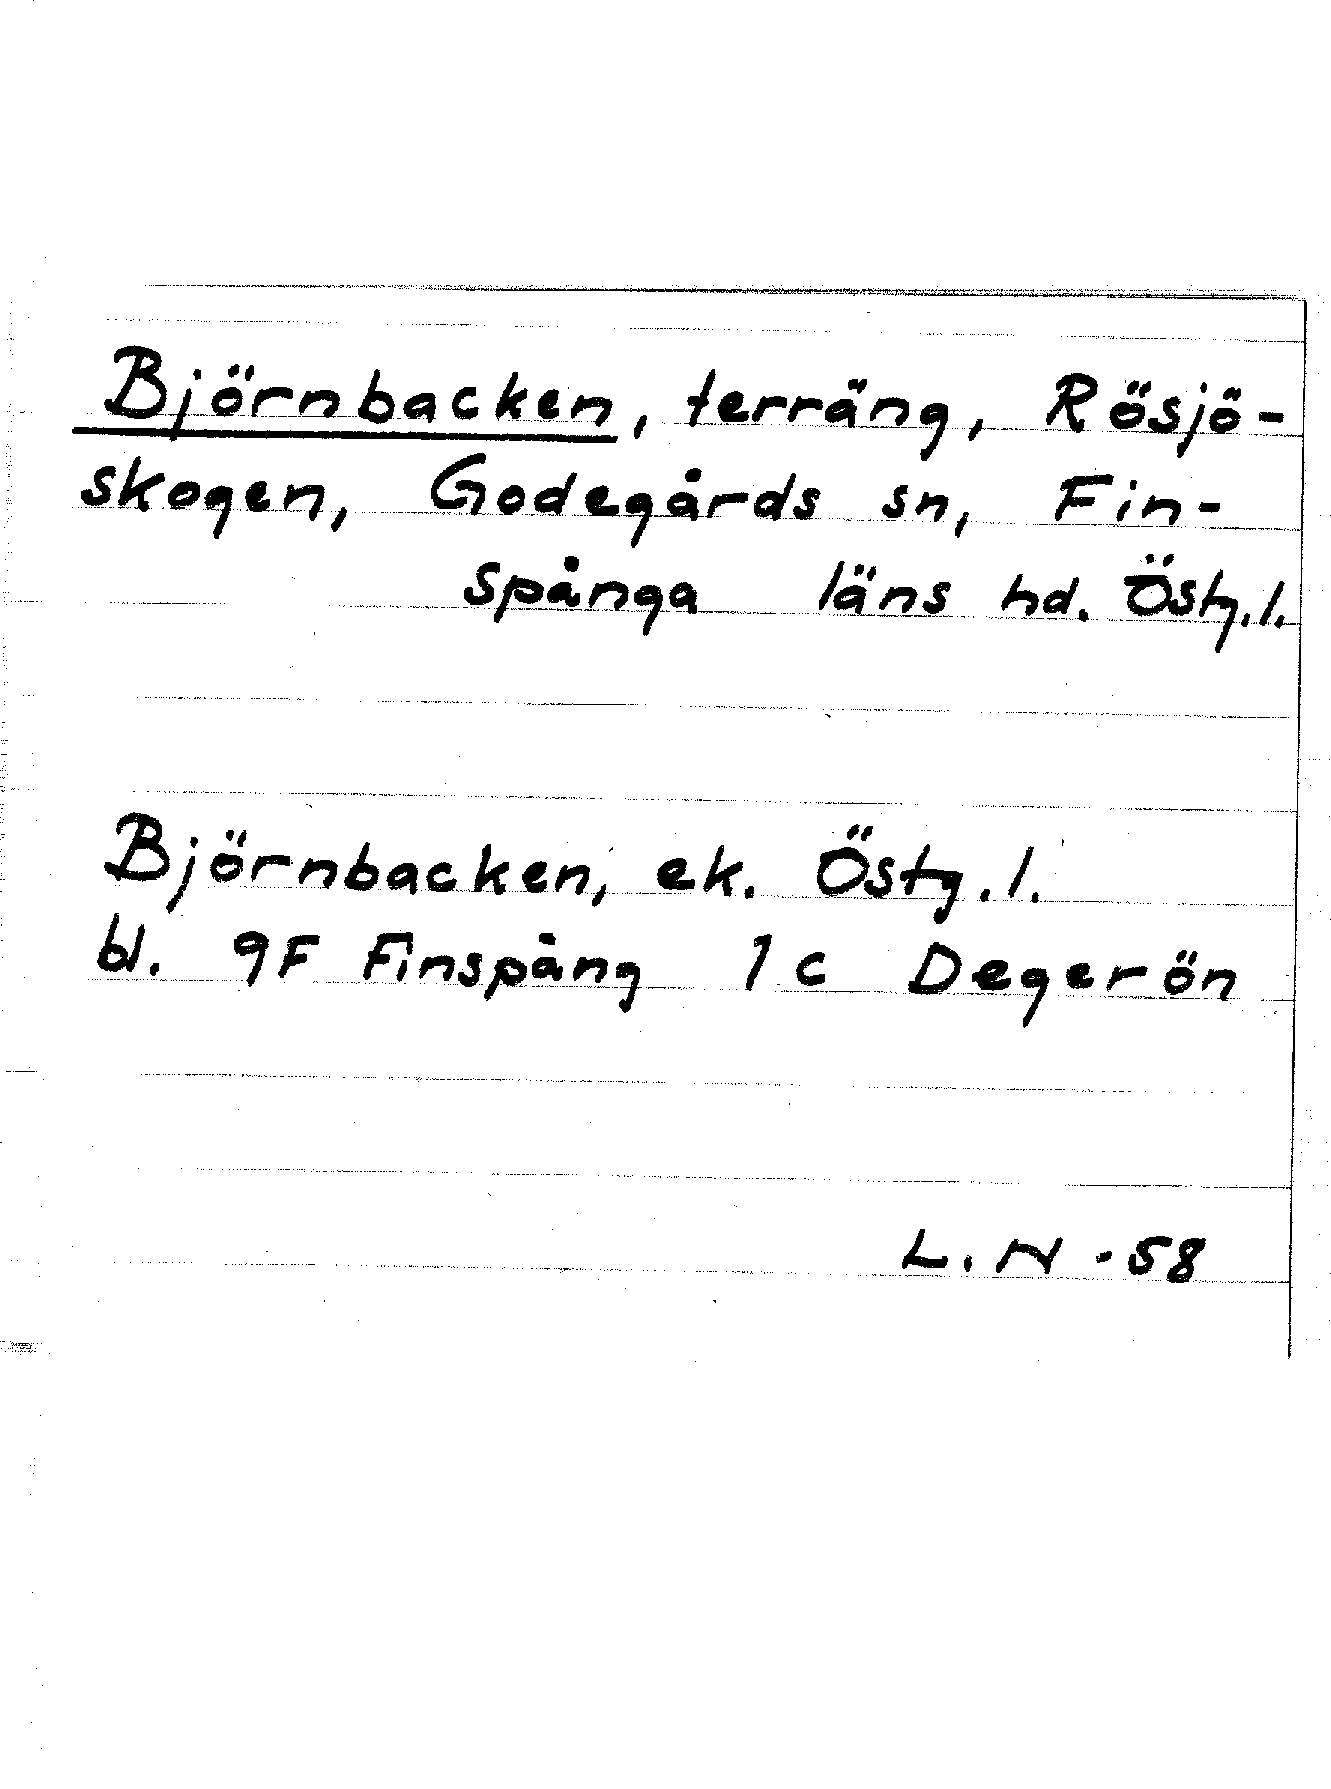 Björnbacken, terräng, Rösjö-
skogen, Godegårds sn, Fin-
spånga läns hd. Östg.l.
Björnbacken, ek. Östg.l.
bl. 9F Finspång 1 c Degerön
L.N -58